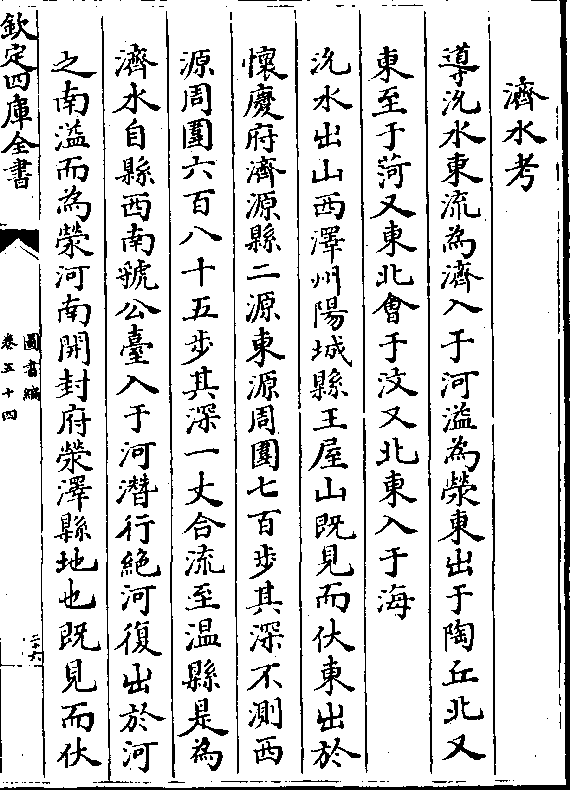 濟水考
導沇水東流為濟入于河溢為滎東出于陶丘北又
東至于菏又東北會于汶又北東入于海
沇水出山西澤州陽城縣王屋山既見而伏東出於
懷慶府濟源縣二源東源周圍七百步其深不測西
源周圍六百八十五步其深一丈合流至温縣是為
濟水自縣西南虢公臺入于河潛行絶河復出於河
之南溢而為滎河南開封府滎澤縣地也既見而伏
欽定四庫全書
圖書編
卷五十四
二十六